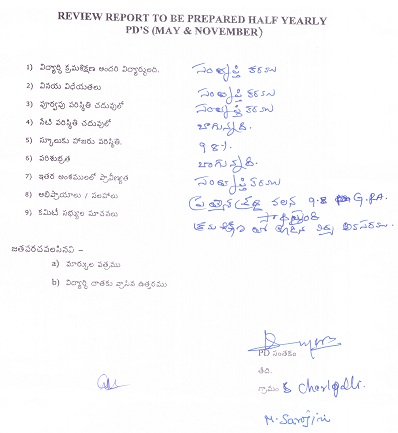 REVIEW REPORT TO BE PREPARED HALF YEARLY
PD'S (MAY & NOVEMBER)
1) విద్యార్థి క్రమశిక్షణ అందరి విద్యార్థులది. సంతృప్తి కరము
2) వినయ విధేయతలు సంతృప్తి కరము
3) పూర్వపు పరిస్థితి చదువులో సంతృప్తి కరము
4) నేటి పరిస్థితి చదువులో బాగున్నది.
5) స్కూలుకు హాజరు పరిస్థితి. 98%
6) పరిశుభ్రత బాగున్నది.
7) ఇతర అంశములలో ప్రావీణ్యత సంతృప్తి కరము
8) అభిప్రాయాలు / సలహాలు వలన 9.8 G.P.A.
9) కమిటీ సభ్యుల సూచనలు
జతపరచవలసినవి –
a) మార్కుల పత్రము
b) విద్యార్థి దాతకు వ్రాసిన ఉత్తరము
PD సంతకం
తేది.
గ్రామం
M. Sarojini